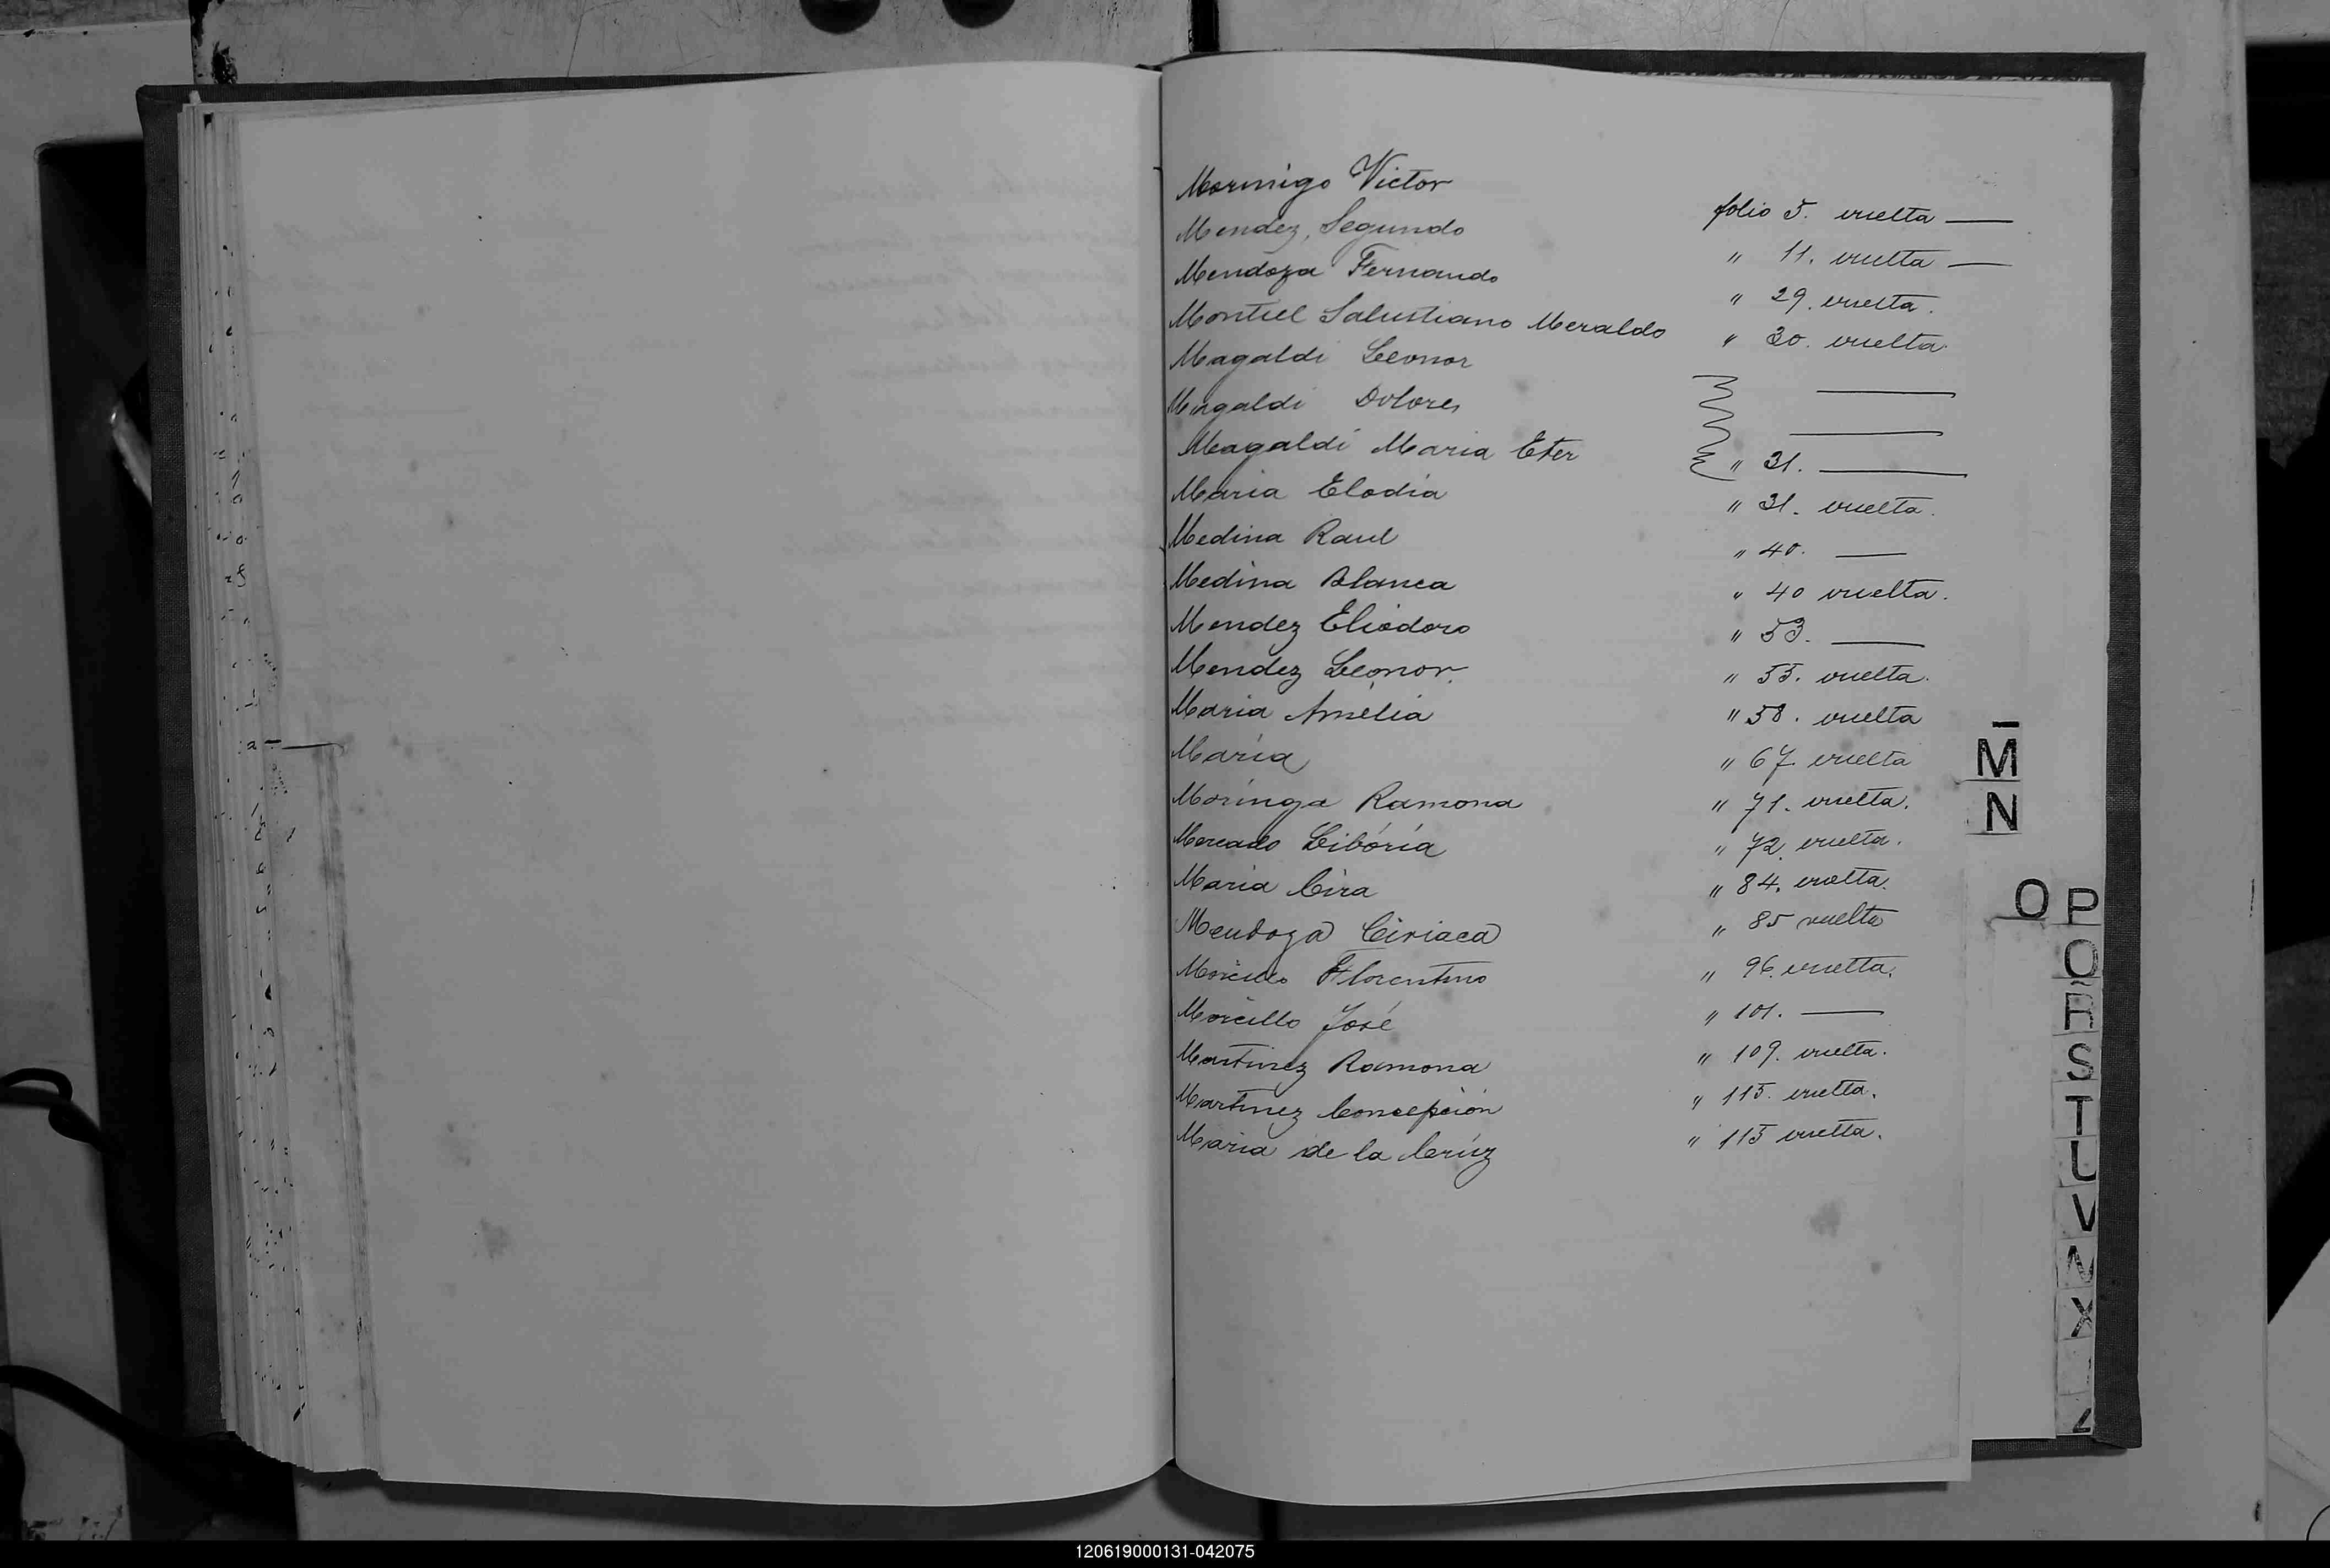 Mormigo Victor folio 5. vuelta —
Mendez, Segundo " 11. vuelta —
Mendoza Fernando " 29. vuelta.
Montiel Salustiano Meraldo " 30. vuelta.
Magaldi Leonor —
Magaldi Dolores —
Magaldi Maria Eter " 31. —
Maria Elodia " 31. vuelta.
Medina Raul " 40. —
Medina Blanca " 40 vuelta.
Mendez Eliodoro " 53. —
Mendez Leonor. " 55. vuelta.
Maria Amelia " 58. vuelta
Maria " 67 vuelta
Moringa Ramona " 71. vuelta.
Mercado Libória " 72. vuelta.
Maria Cira " 84. vuelta.
Mendoza Ciriaca " 85 vuelta
Morcillo Florentino " 96. vuelta.
Morcillo José " 101. —
Martinez Ramona " 109. vuelta.
Martinez Concepción " 115. vuelta.
Maria de la Crúz " 115 vuelta.
M
N
O P
Q
R
S
T
U
V
X
Z
120619000131-042075